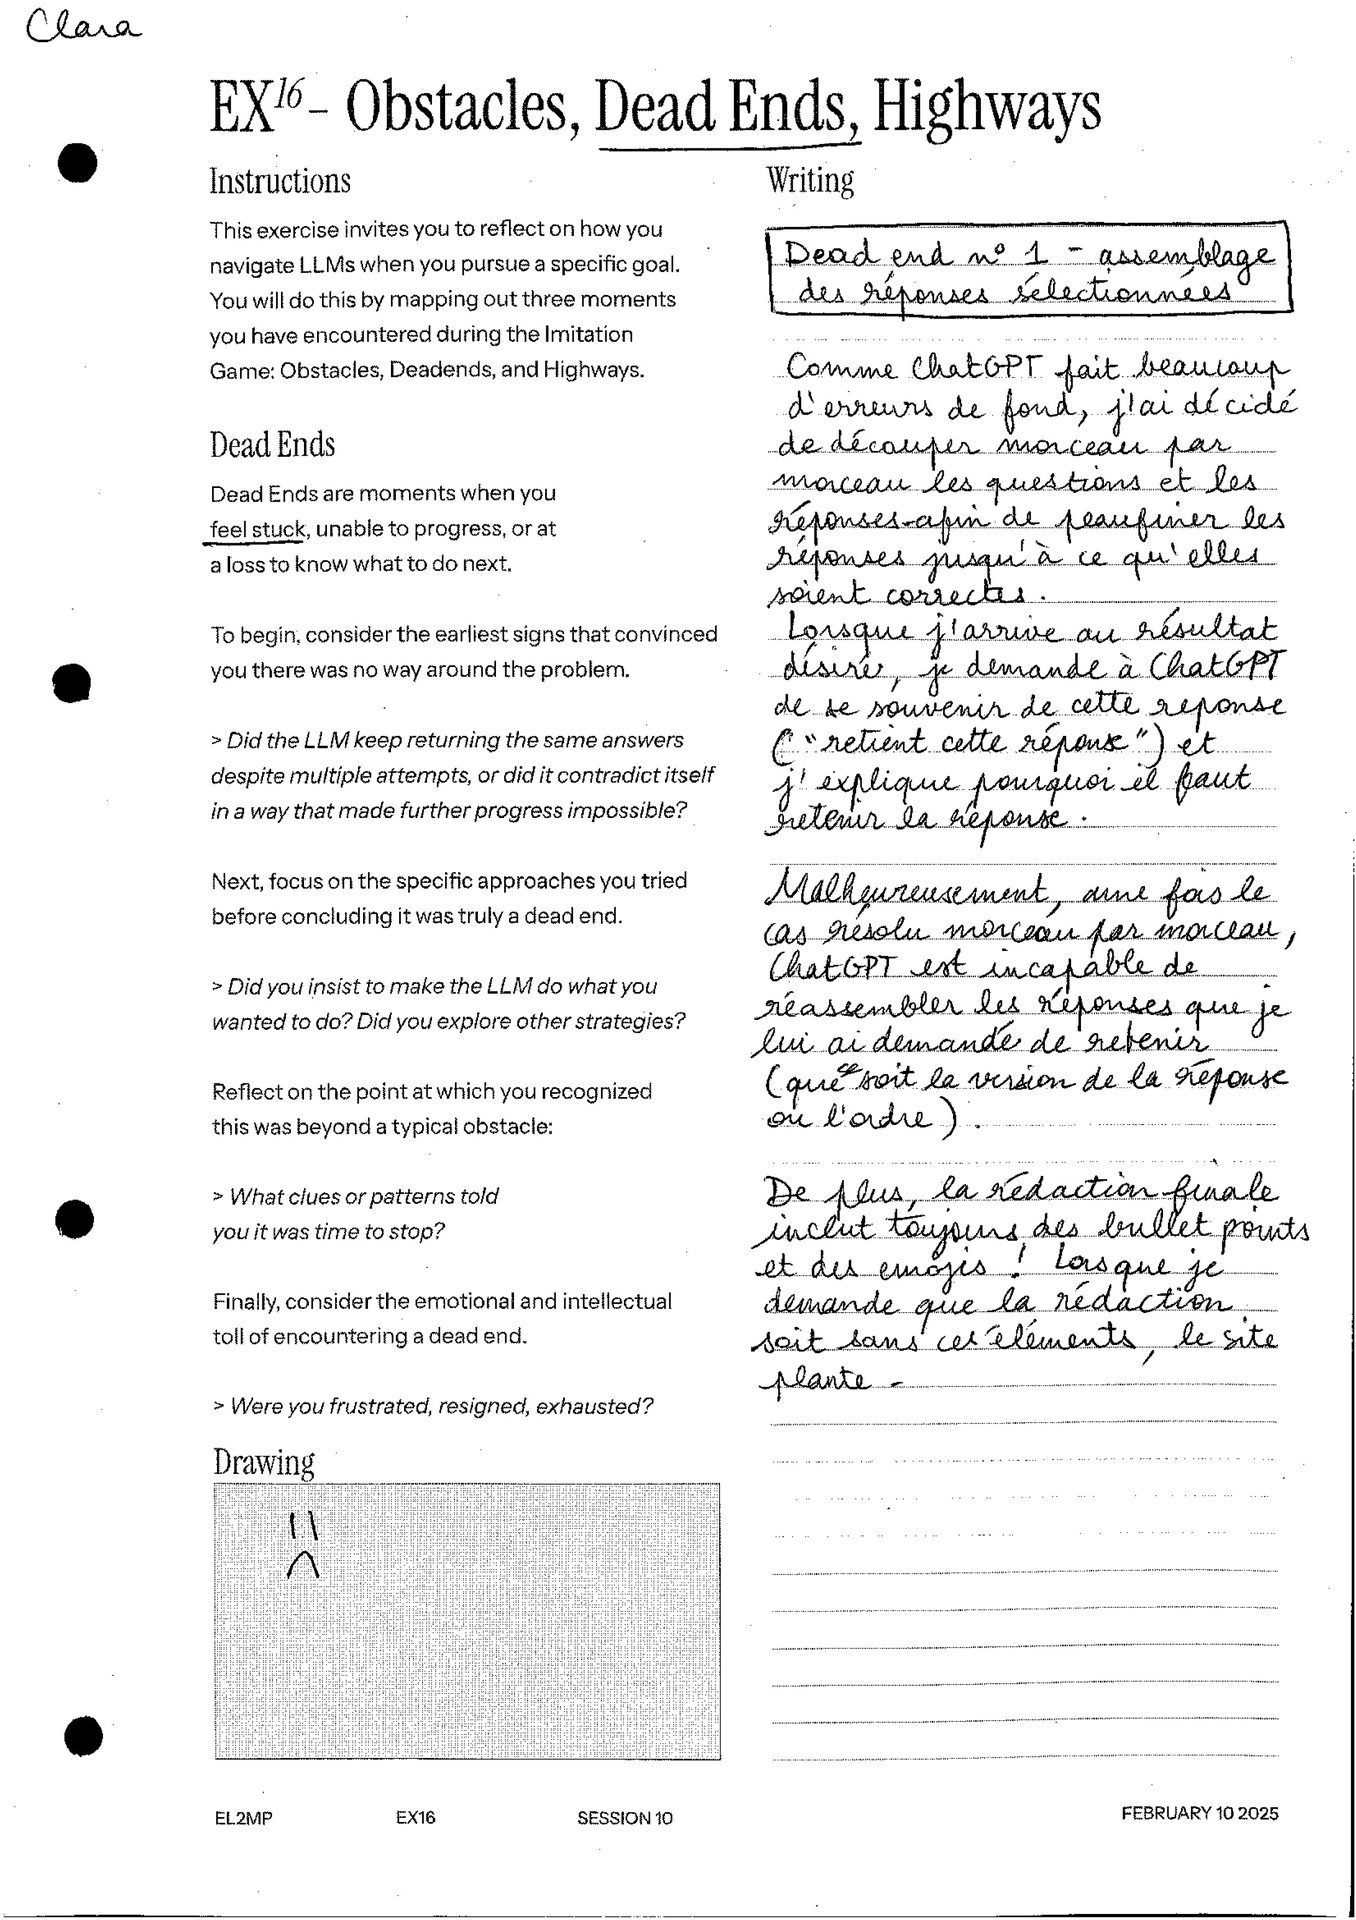 Clara
EX16 - Obstacles, Dead Ends, Highways
Instructions
This exercise invites you to reflect on how you
navigate LLMs when you pursue a specific goal.
You will do this by mapping out three moments
you have encountered during the Imitation
Game: Obstacles, Deadends, and Highways.
Dead Ends
Dead Ends are moments when you
feel stuck, unable to progress, or at
a loss to know what to do next.
To begin, consider the earliest signs that convinced
you there was no way around the problem.
> Did the LLM keep returning the same answers
despite multiple attempts, or did it contradict itself
in a way that made further progress impossible?
Next, focus on the specific approaches you tried
before concluding it was truly a dead end.
> Did you insist to make the LLM do what you
wanted to do? Did you explore other strategies?
Reflect on the point at which you recognized
this was beyond a typical obstacle:
> What clues or patterns told
you it was time to stop?
Finally, consider the emotional and intellectual
toll of encountering a dead end.
> Were you frustrated, resigned, exhausted?
Drawing
Writing
Dead end n° 1 - assemblage
des réponses sélectionnées
Comme ChatGPT fait beaucoup
d'erreurs de fond, j'ai décidé
de découper morceau par
morceau les questions et les
réponses afin de peaufiner les
réponses jusqu'à ce qu'elles
soient correctes.
Lorsque j'arrive au résultat
désiré, je demande à ChatGPT
de se souvenir de cette reponse
("retient cette réponse") et
j'explique pourquoi il faut
retenir la réponse.
Malheureusement, une fois le
cas résolu morceau par morceau,
ChatGPT est incapable de
réassembler les réponses que je
lui ai demandé de retenir
(que ce soit la version de la réponse
ou l'ordre).
De plus, la rédaction finale
inclut toujours des bullet points
et des emojis ! Lorsque je
demande que la rédaction
soit sans ces éléments, le site
plante -
EL2MP EX16 SESSION 10 FEBRUARY 10 2025